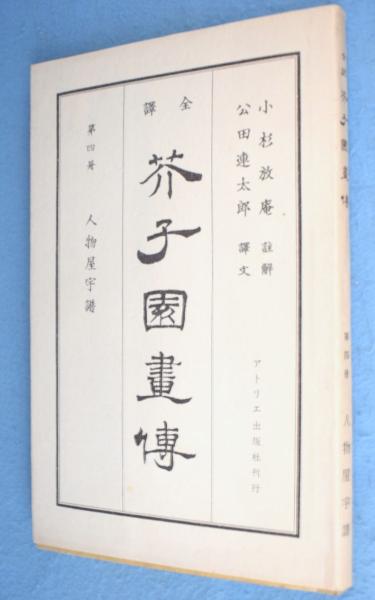 小杉放庵 註解
公田連太郎 譯文
アトリエ出版社刊行
全譯
芥子園畫傳
第四册 人物屋宇譜
全譯 芥子園畫傳
第四册 人物屋宇譜